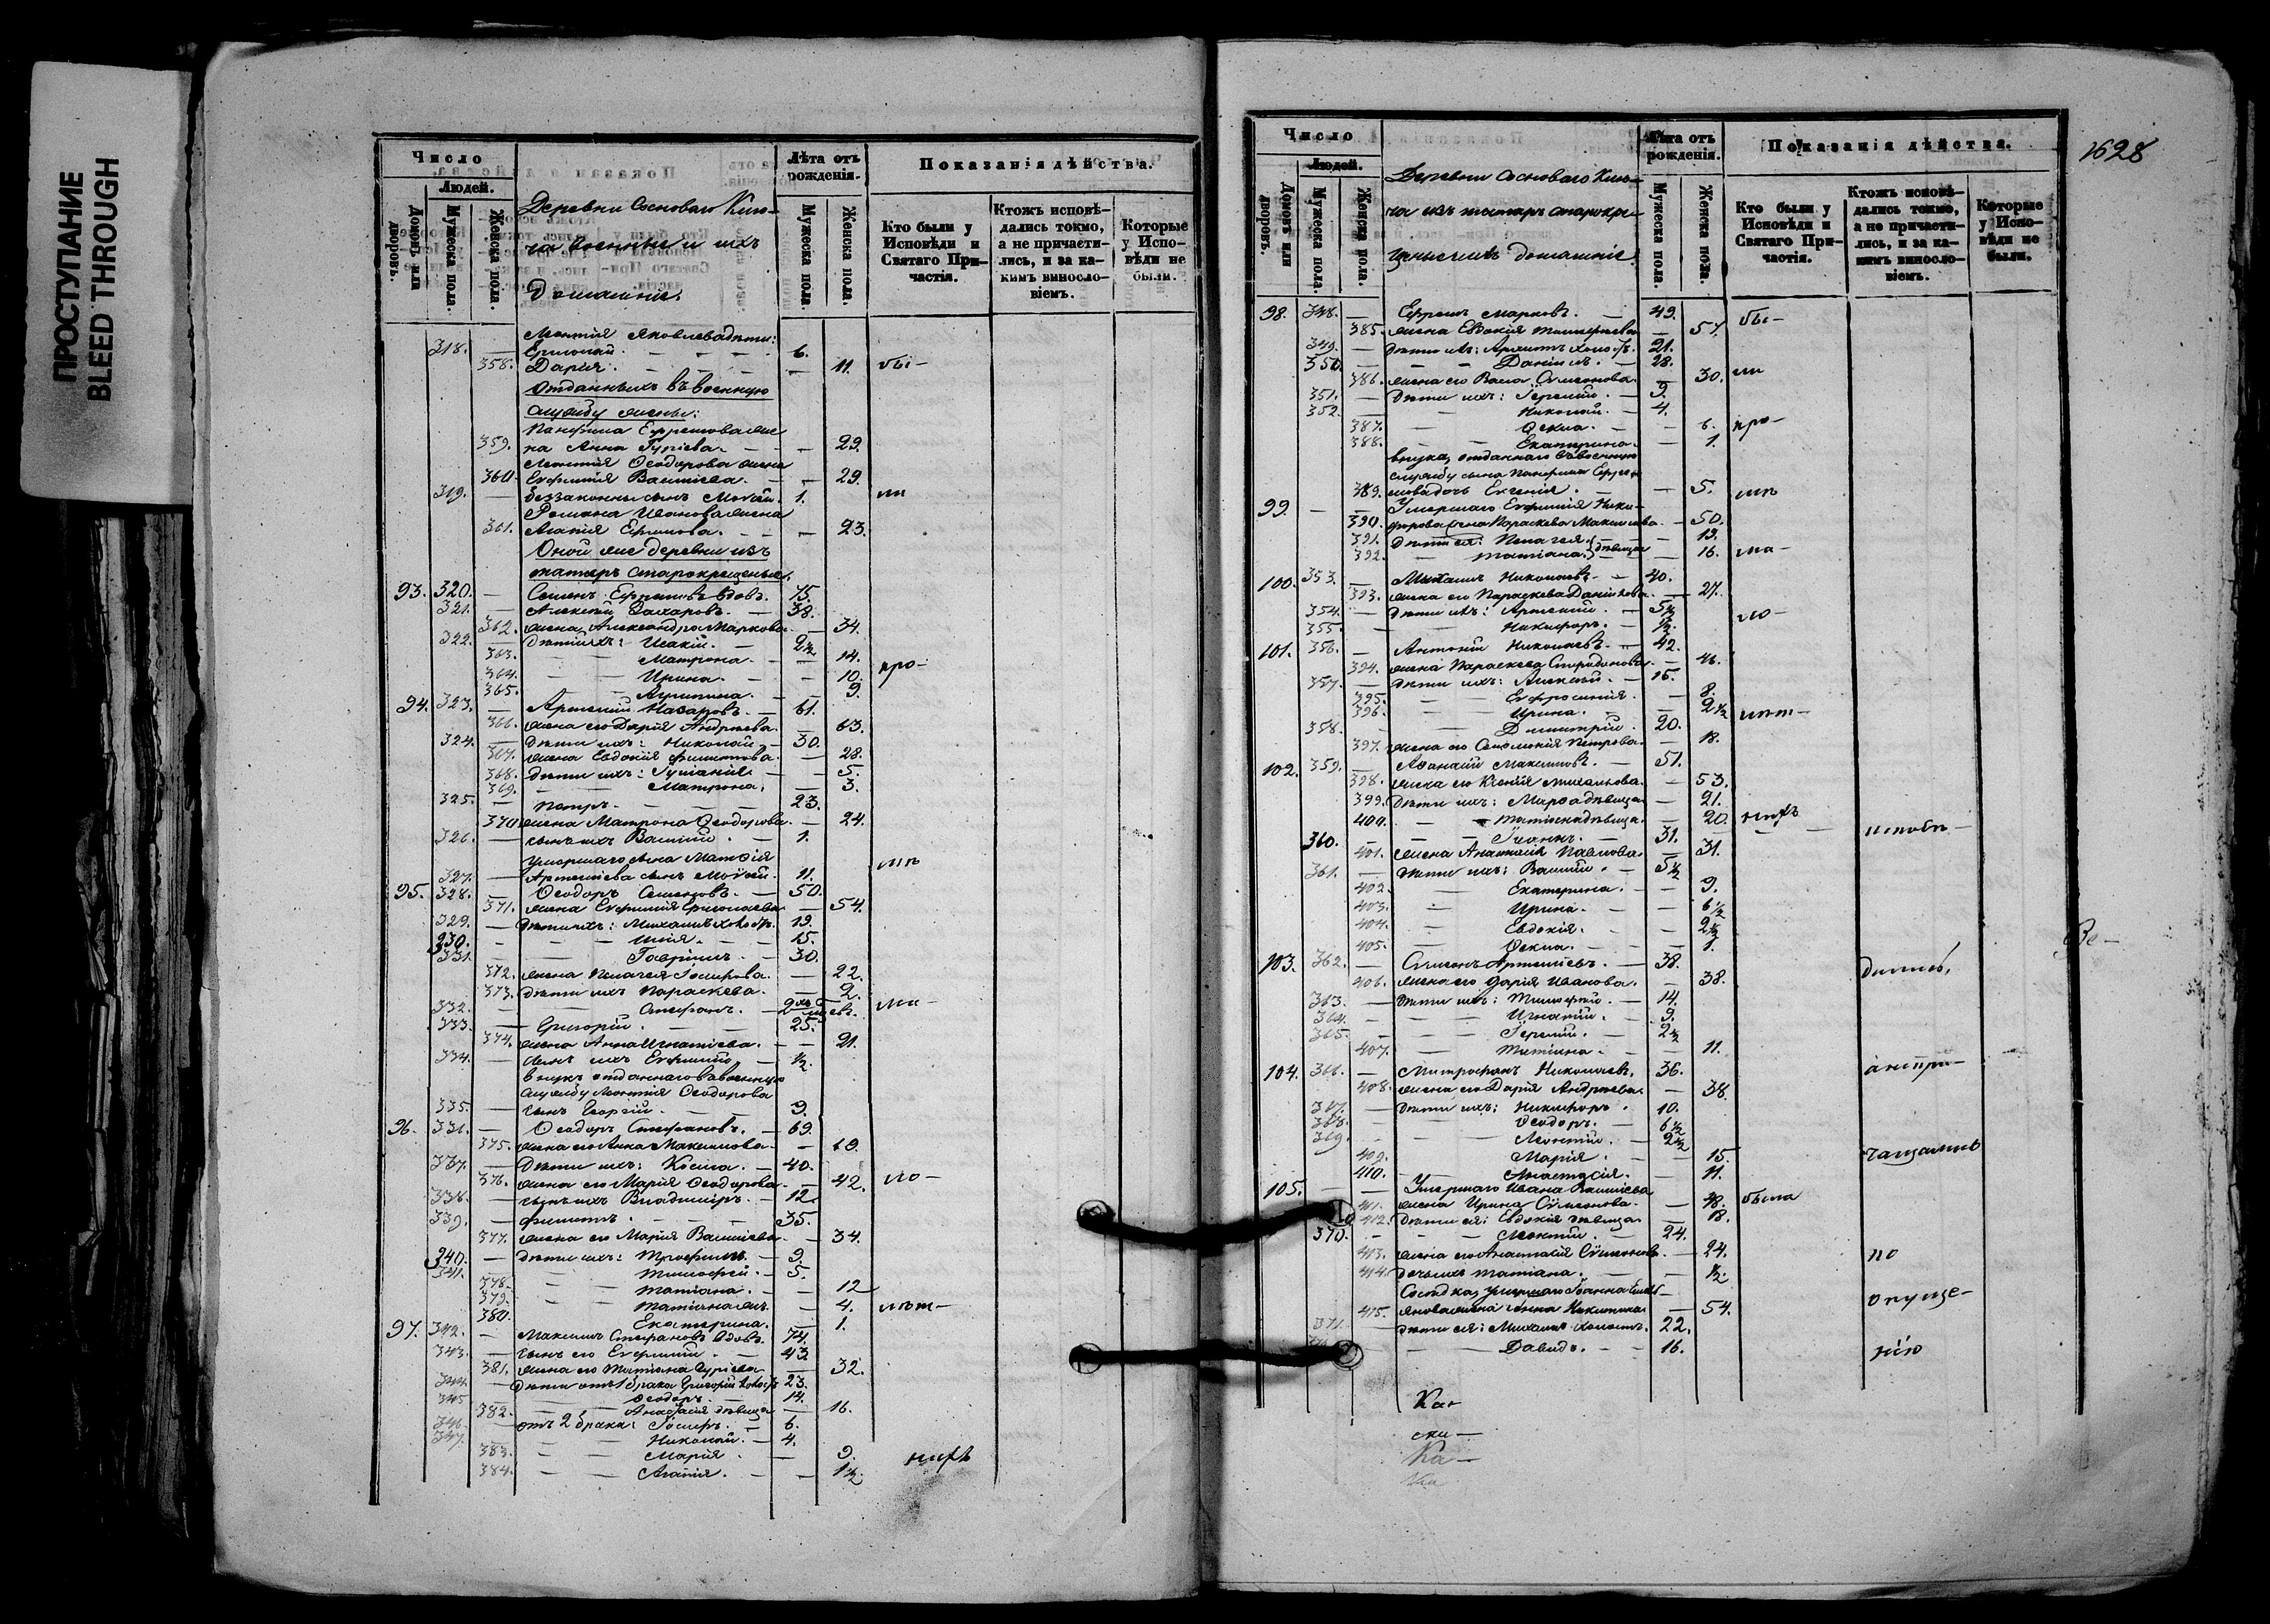 ПРОСТУПАНИЕ
BLEED THROUGH
Число
Людей.
Домовъ или дворовъ.
Мужеска пола.
Женска пола.
Деревни Сосноваго Клю-
ча военные и ихъ
домашніе.
Лѣта отъ рожденія.
Мужеска пола.
Женска пола.
Показанія дѣйства.
Кто были у Исповѣди и Святаго При-
частія.
Ктожъ исповѣ-
дались токмо,
а не причасти-
лись, и за ка-
кимъ винословіемъ.
Которые
у Испо-
вѣди не
были.
Леонтія Яковлева дѣти:
318. — Ермолай. — 6.
358. Дарія. — 11. бы-
Отданныхъ въ военную
службу жены:
Панфила Ефремова же
359. на Анна Гуріева. — 29.
Леонтія Ѳеодорова жена
360. Евфимія Василіева. — 29.
319. — беззаконный сынъ Моѵсей. 1. ли
Романа Иванова жена
361. Агапія Ефимова. — 23.
Оной же деревни изъ
татаръ старокрещеные.
93. 320. — Семенъ Ефремовъ вдовъ. 75.
321. — Алексѣй Захаровъ. — 38.
362. жена Александра Маркова. — 34.
322. — Дѣти ихъ: Исакій. — 2½
363. Матрона. — 14.
364. Ирина. — 10. про-
365. Агрипина. — 9.
94. 323. — Артемій Назаровъ. — 61.
366. жена его Дарія Андреева. 63.
324. — Дѣти ихъ: Николай. — 30.
367. жена Евдокія Филиппова. — 28.
368. дѣти ихъ: Іуліанія — 5.
369. Матрона. 3.
325. — Петръ. — 23.
370. жена Матрона Ѳеодорова. — 24.
326. — сынъ ихъ Василій. — 1.
умершаго сына Матѳія
327. — Артеміева сынъ Моѵсей. 11. мъ
95. 328. — Ѳеодоръ Семеновъ. — 50.
371. жена Евфимія Ермолаева — 54.
329. — Дѣти ихъ: Михаилъ холостъ. 19.
330. — Илія. — 15.
331. Гавріилъ. — 30.
372. жена Пелагея — 22.
373. дѣти ихъ Параскева. — 2.
332. — Стефанъ. — 2 ли-
333. — Григорій. — 25.
374. жена Анна Игнатіева. — 21.
334. — сынъ ихъ Евфимій. — ½.
внукъ отданнаго въ военную
службу Леонтія Ѳеодорова
335. — сынъ Георгій. — 9.
96. 336. — Ѳеодоръ Стефановъ. — 69.
375. жена его Анна Максимова. —
337. — Дѣти ихъ: Косма. — 40.
376. жена его Марія Ѳеодорова. — 42. ло-
338. — сынъ ихъ Владиміръ. — 12.
339. — Филиппъ. — 35.
377. жена его Марія Василіева. — 34.
340. — дѣти ихъ: Трофимъ. — 9.
341. Тимофей. — 5.
378. Татіана. — 12
379. Татіана — 4. лѣт-
380. Екатерина. — 1.
97. 342. — Максимъ Стефановъ вдовъ. 74.
343. — сынъ его Евфимій. — 43
381. жена его Татіана Гуріева — 32.
344. — Дѣти отъ 1 брака Григорій холостъ 23.
345 Ѳеодоръ. — 14.
382. Анастасія дѣвица 16.
346. — отъ 2 брака: — 6.
347. Николай. — 4.
383. Марія — 9. нихъ
384. Агапія. — 1½.
1628
Число
Людей.
Домовъ или дворовъ.
Мужеска пола.
Женска пола.
Деревни Сосноваго Клю-
ча изъ татаръ старокре-
щеныхъ домашніе
Лѣта отъ рожденія.
Мужеска пола.
Женска пола.
Показанія дѣйства.
Кто были у
Исповѣди и
Святаго При-
частія.
Ктожъ исповѣ-
дались токмо,
а не причасти-
лись, и за ка-
кимъ винословіемъ.
Которые
у Испо-
вѣди не
были.
98. 348. — Ефремъ Марковъ. — 49. бы-
385. жена Евдокія Тимофеева — 57.
349. — дѣти ихъ: холостъ. 21.
350. Даніилъ. — 28.
386. жена его Васса Сѵмеонова. — 30. ли
351. — дѣти ихъ: Сергій. — 9.
352. Николай. — 4.
387. Ѳекла. — 6. про-
388. Екатерина. — 1.
внука, отданнаго въ военную
службу сына Панфила Ефре
389. мова дочь Евгенія. — 5. мъ
99. — — Умершаго Евфимія Ники-
390. форова жена Параскева Максимова. — 50.
391. Дѣти ея: Пелагея 19.
392. Татіана } дѣвицы — 16. ли-
100. 353. — Михаилъ Николаевъ. — 40.
393. жена его Параскева Данилова. — 27.
354. — дѣти ихъ: Артемій. — 5½ ло-
355. Никифоръ. — ½.
101. 356. — Антоній Николаевъ. — 42.
394. жена Параскева Спиридонова. — 46.
357. — дѣти ихъ: Алексѣй. — 15.
395. Евфросинія. — 8.
396. Ирина. — 2½ лѣт-
358. Димитрій. 20.
397. жена его Соломонія Петрова. — 18.
102. 359. — Аѳанасій Максимовъ. — 51.
398. жена его Ксенія Михаилова. — 53.
399. Дѣти ихъ: Марѳа дѣвица — 21.
400. Татіана дѣвица. — 20. нихъ
360. Іоаннъ. — 31. исповѣ-
401. жена Анастасія Павлова. 31.
361. — дѣти ихъ: Василій. — 5½
402. Екатерина. — 9.
403. Ирина. — 6½
404. Евдокія. — 2½
405. Ѳекла. — 1.
Ве-
103. 362. — Сѵмеонъ Артеміевъ. — 38. дались,
406. жена его Дарія Иванова. — 38.
363. — дѣти ихъ: Тимофей. — 14.
364. Игнатій. — 9.
365. Сергій. — 2½
407. Татіана. — 11.
104. 366. — Митрофанъ Николаевъ. 36. а непри-
408. жена его Дарія Андреева. — 38.
367. — дѣти ихъ: Никифоръ. 10.
368. Ѳеодоръ. — 6½
369. Леонтій. — 2½
409. Марія. — 15. чащались
410. Анастасія. — 11.
105. — — Умершаго Ивана Василіева
411. жена Ирина Сѵмеонова. — 48. была
412. дѣти ея: Евдокія дѣвица — 18.
370. Леонтій. — 24.
413. жена его Анастасія Сѵмеонова. — 24. по
414. дочь ихъ Татіана. — ½.
415. жена Анна Никитина — 54. опуще-
371. дѣти ея: Михаилъ холостъ. 22.
Давидъ. — 16. нію
Ка-
ски-
Ка-